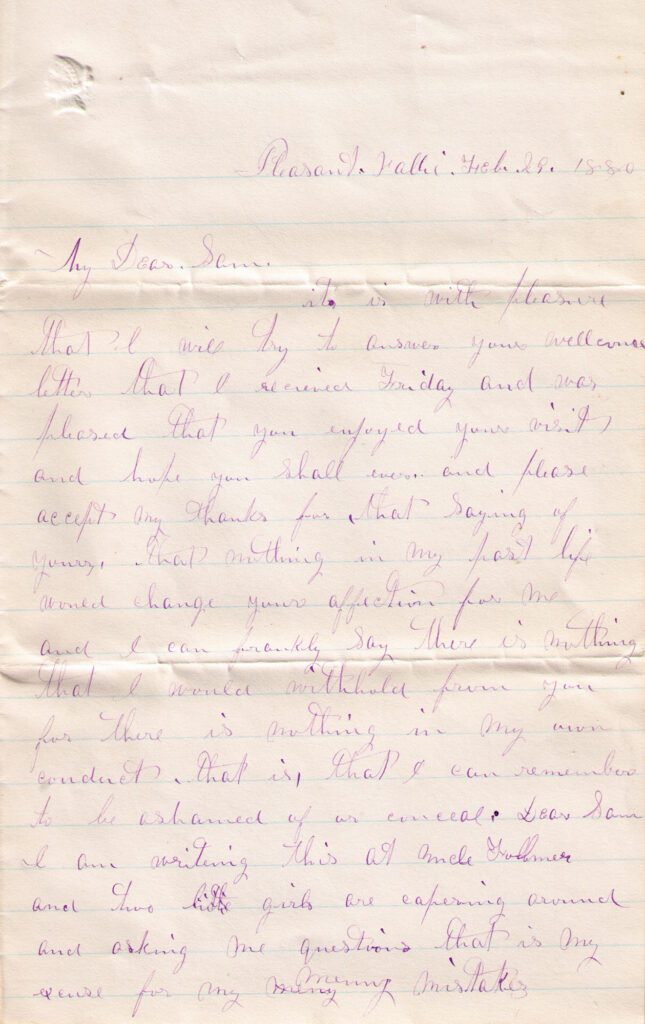 Pleasant. Feb. 29. 1880
My Dear. Sam.
it. is with pleasure
that I will try to answer your wellcome
letter that I recieved Friday and was
pleased that you enjoyed your visit,
and hope you shall ever. and please
accept my thanks for that saying of
yours, that nothing in my past life
would change your affection for me
and I can frankly say there is nothing
that I would withhold from you
for there is nothing in my own
conduct. that is, that I can remember
to be ashamed of or conceal. Dear Sam
I am writing this at uncle
and two little girls are capering around
and asking me questions that is my
excuse for my menny mistakes